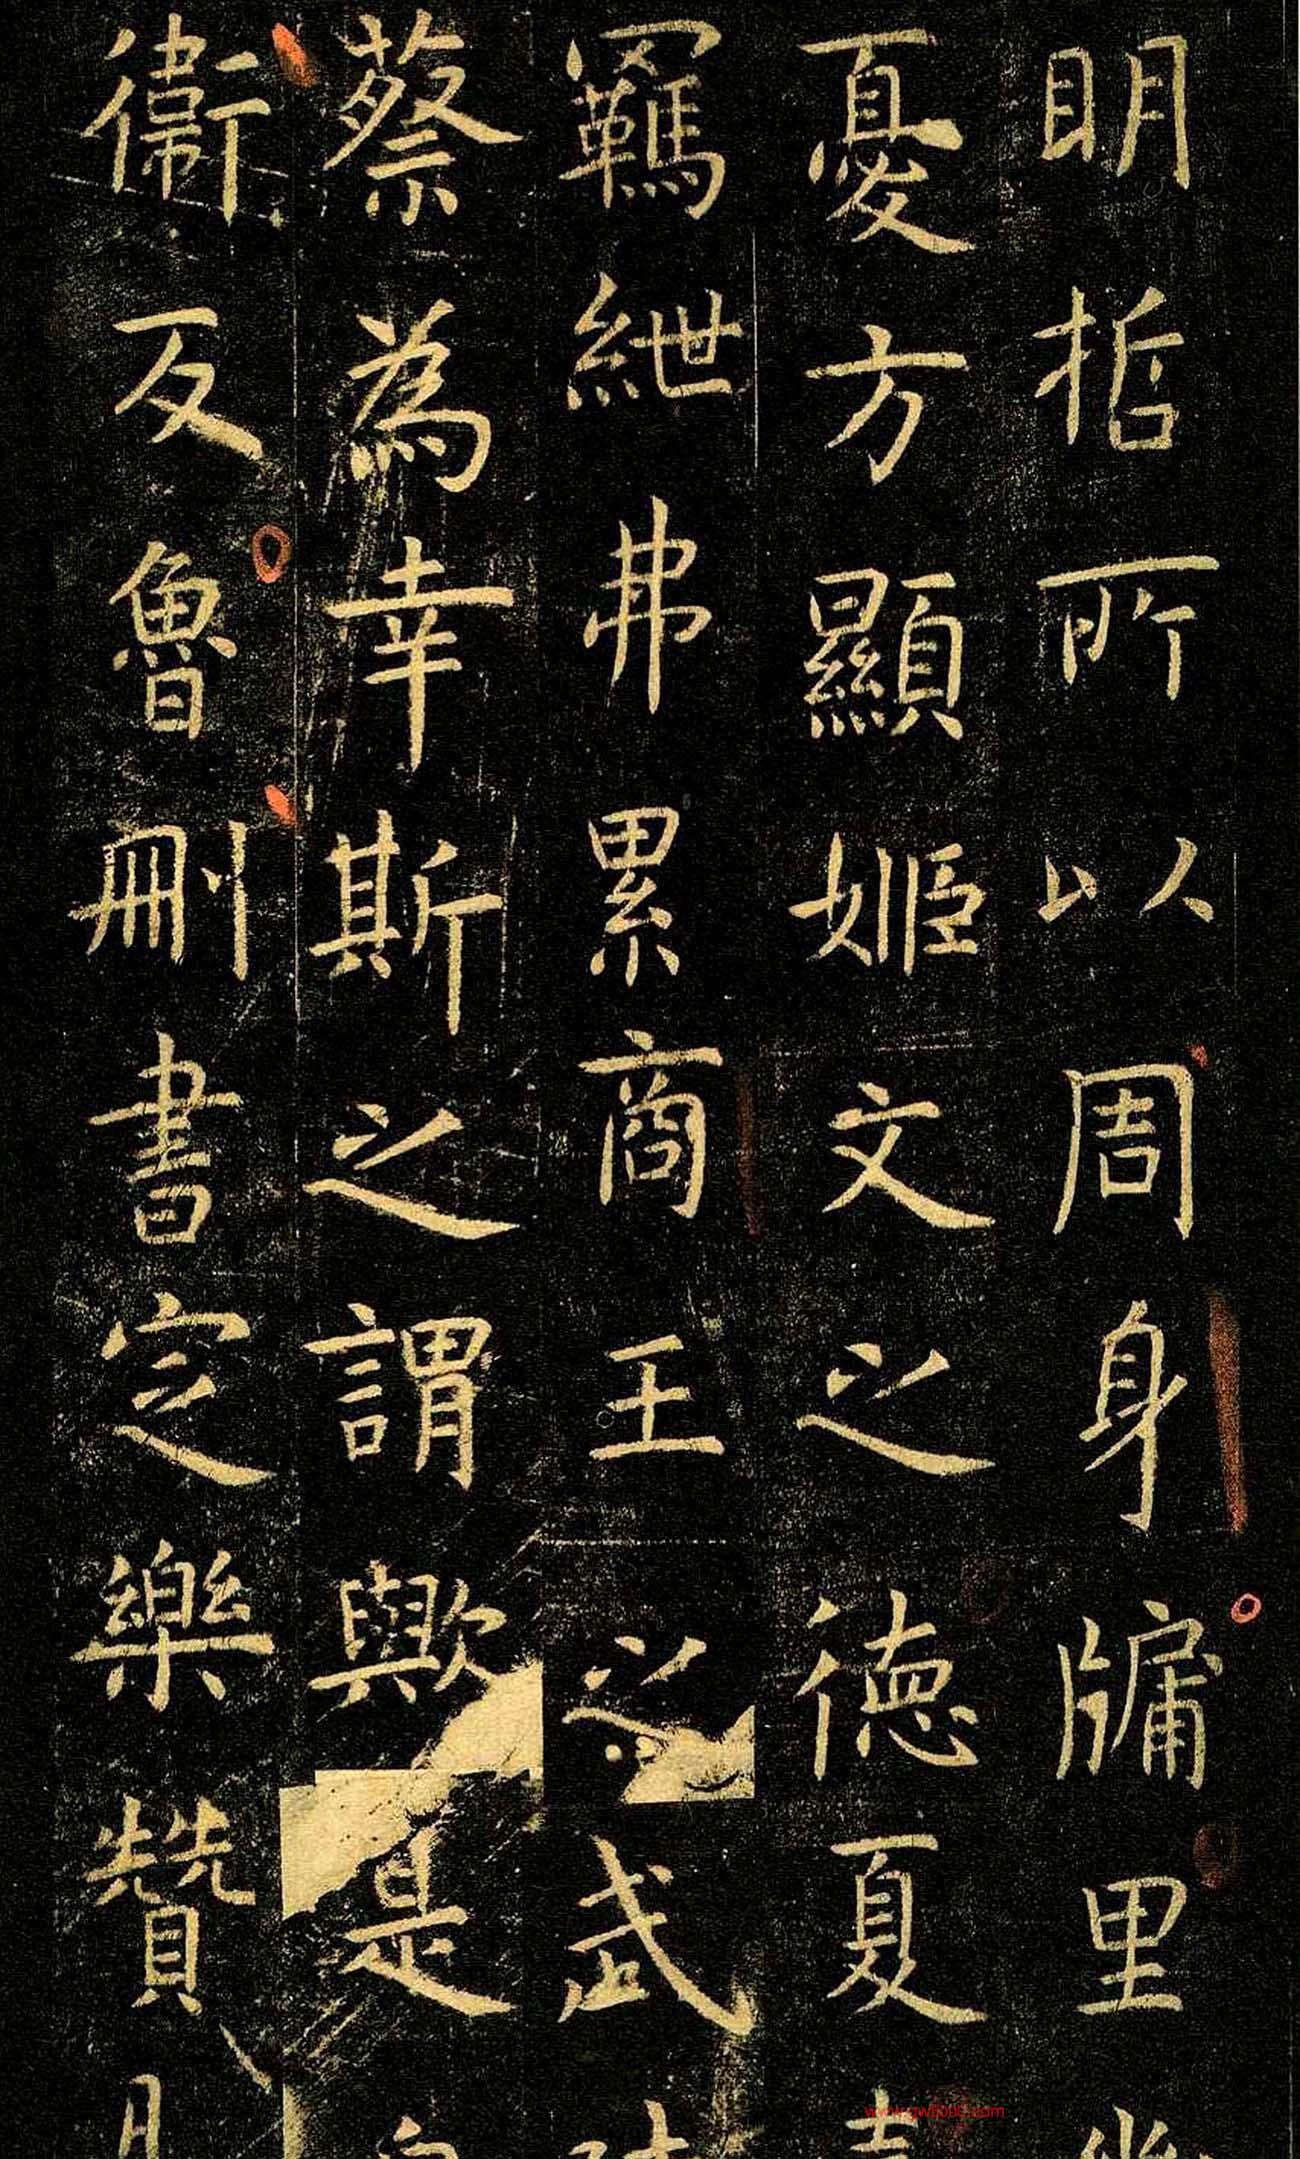 明哲所以周身牖里
憂方顯姬文之德夏
羈紲弗累商王之武
蔡為幸斯之謂歟是
衛反魯刪書定樂贊
www.gw5000.com